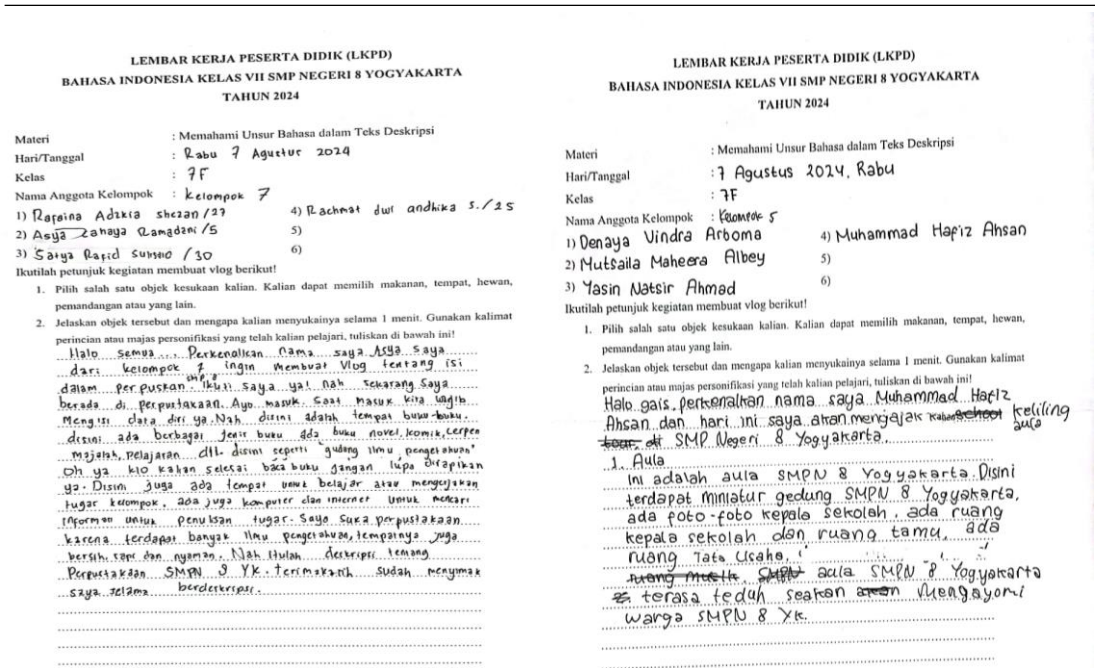 LEMBAR KERJA PESERTA DIDIK (LKPD)
BAHASA INDONESIA KELAS VII SMP NEGERI 8 YOGYAKARTA
TAHUN 2024
Materi : Memahami Unsur Bahasa dalam Teks Deskripsi
Hari/Tanggal : Rabu 7 Agustus 2024
Kelas : 7F
Nama Anggota Kelompok : kelompok 7
1) Rafaina Adzkia shezan /27 4) Rachmat dwi andhika S./25
2) Asya Zahaya Ramadani /5 5)
3) Satya Rafid /30 6)
Ikutilah petunjuk kegiatan membuat vlog berikut!
1. Pilih salah satu objek kesukaan kalian. Kalian dapat memilih makanan, tempat, hewan,
pemandangan atau yang lain.
2. Jelaskan objek tersebut dan mengapa kalian menyukainya selama 1 menit. Gunakan kalimat
perincian atau majas personifikasi yang telah kalian pelajari, tuliskan di bawah ini!
Halo semua ... Perkenalkan nama saya Asya Saya
dari kelompok 7 ingin membuat Vlog tentang isi
dalam perpuskan. Ikuti saya ya! nah sekarang saya
berada di perpustakaan. Ayo masuk. Saat masuk kita wajib
Mengisi data diri ya. Nah disini adalah tempat buku-buku.
disini ada berbagai jenis buku ada buku novel, komik, cerpen
majalah, pelajaran dll. disini seperti "gudang ilmu pengetahuan"
Oh ya klo kalian selesai baca buku jangan lupa dirapikan
ya. Disini juga ada tempat untuk belajar atau mengerjakan
tugas kelompok. ada juga komputer dan internet untuk mencari
informasi untuk penulisan tugas. Saya Suka perpustakaan
karena terdapat banyak ilmu pengetahuan, tempatnya juga
bersih, rapi dan nyaman. Nah itulah deskripsi tentang
Perpustakaan SMPN 8 YK. terimakasih sudah menyimak
saya selama berdeskripsi.
LEMBAR KERJA PESERTA DIDIK (LKPD)
BAHASA INDONESIA KELAS VII SMP NEGERI 8 YOGYAKARTA
TAHUN 2024
Materi : Memahami Unsur Bahasa dalam Teks Deskripsi
Hari/Tanggal : 7 Agustus 2024, Rabu
Kelas : 7F
Nama Anggota Kelompok : Kelompok 5
1) Denaya Vindra Arboma 4) Muhammad Hafiz Ahsan
2) Mutsaila Maheera Albey 5)
3) Yasin Natsir Ahmad 6)
Ikutilah petunjuk kegiatan membuat vlog berikut!
1. Pilih salah satu objek kesukaan kalian. Kalian dapat memilih makanan, tempat, hewan,
pemandangan atau yang lain.
2. Jelaskan objek tersebut dan mengapa kalian menyukainya selama 1 menit. Gunakan kalimat
perincian atau majas personifikasi yang telah kalian pelajari, tuliskan di bawah ini!
Halo gais, perkenalkan nama saya Muhammad Hafiz
Ahsan dan hari ini saya akan mengajak kalian school keliling
tour di SMP Negeri 8 Yogyakarta. aula
1. Aula
Ini adalah aula SMPN 8 Yogyakarta. Disini
terdapat miniatur gedung SMPN 8 Yogyakarta,
ada foto-foto kepala sekolah, ada ruang
kepala sekolah dan ruang tamu, ada
ruang Tata Usaha,
ruang musik, SMPN aula SMPN 8 Yogyakarta
terasa teduh seakan akan Mengayomi
warga SMPN 8 YK.